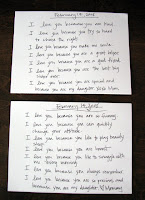 February 14, 2008
I love you because you are kind.
I love you because you try so hard
to choose the right.
I love you because you make me smile.
I love you because you are a great helper.
I love you because you are a good friend.
I love you because you are the best big
sister ever.
I love you because you are special and
because you are my daughter. Love Mom.
February 14, 2008
I love you because you are so funny.
I love you because you can quickly
change your attitude.
I love you because you like to play beauty
shop.
I love you because you are honest.
I love you because you like to snuggle with
me every morning.
I love you because you always remember
I love you because you are so precious and
because you are my daughter.